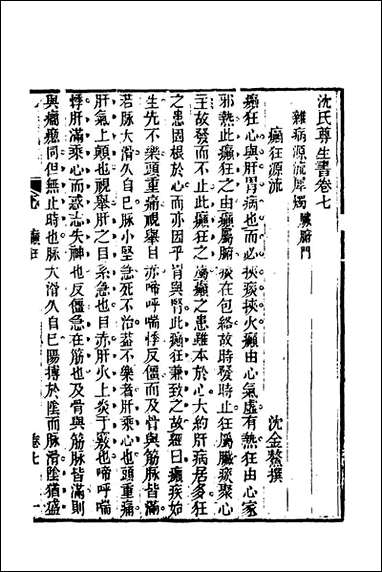 沈氏尊生書卷七
雜病源流犀燭 臟腑門
沈金鰲撰
癲狂源流
癲狂心與肝胃病也而必挾痰挾火癲由心氣虛有熱狂由心家
邪熱此癲狂之由癲屬腑痰在包絡故時發時止狂屬臟痰聚心
主故發而不止此癲狂之屬癲之患雖本於心大約肝病居多狂
之患固根於心而亦因乎胃與腎此癲狂兼致之故經曰癲疾始
生先不樂頭重痛視舉目赤啼呼喘悸反僵而及骨與筋脉皆滿
若脉大滑久自已脉小堅急死不治蓋不樂者肝乘心也頭重痛
肝氣上顛也視舉肝之目系急也目赤肝火上炎于竅也啼呼喘
悸肝滿乘心而惑志失神也反僵急在筋也及骨與筋脉皆滿則
與痛癥同但無止時也脉大滑久自已陽搏於陰而脉滑陰猶盛
癲狂
卷七
一